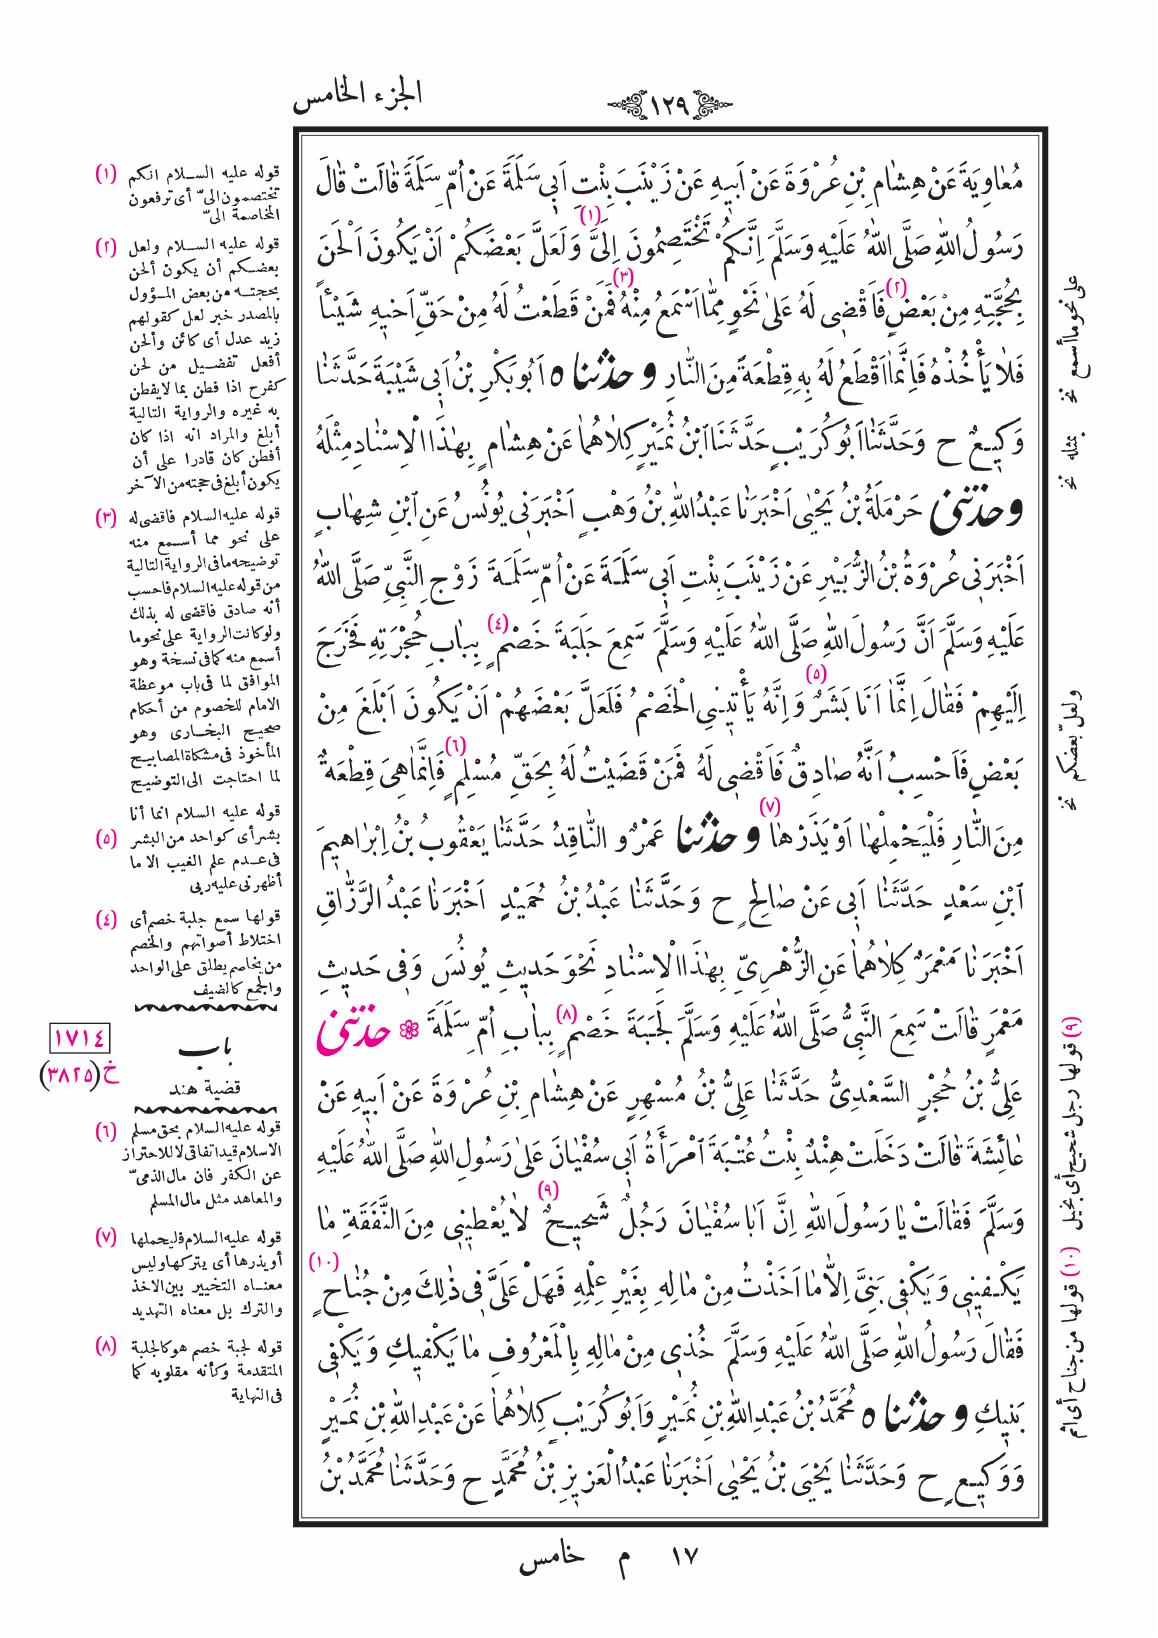 الجزء الخامس
١٢٩
مُعَاوِيَةَ عَنْ هِشَامِ بْنِ عُرْوَةَ عَنْ اَبِيهِ عَنْ زَيْنَبَ بِنْتِ اَبِي سَلَمَةَ عَنْ اُمِّ سَلَمَةَ قَالَتْ قَالَ
رَسُولُ اللهِ صَلَّى اللهُ عَلَيْهِ وَسَلَّمَ اِنَّكُمْ تَخْتَصِمُونَ اِلَيَّ (١) وَلَعَلَّ بَعْضَكُمْ اَنْ يَكُونَ اَلْحَنَ
بِحُجَّتِهِ مِنْ بَعْضٍ (٢) فَاَقْضِي لَهُ عَلَى نَحْوٍ مِمَّا اَسْمَعُ مِنْهُ (٣) فَمَنْ قَطَعْتُ لَهُ مِنْ حَقِّ اَخِيهِ شَيْئًا
فَلَا يَأْخُذْهُ فَاِنَّمَا اَقْطَعُ لَهُ بِهِ قِطْعَةً مِنَ النَّارِ وحدثناه اَبُو بَكْرِ بْنُ اَبِي شَيْبَةَ حَدَّثَنَا
وَكِيعٌ ح وَحَدَّثَنَا اَبُو كُرَيْبٍ حَدَّثَنَا ابْنُ نُمَيْرٍ كِلَاهُمَا عَنْ هِشَامٍ بِهٰذَا الْاِسْنَادِ مِثْلَهُ
وحدثني حَرْمَلَةُ بْنُ يَحْيَى اَخْبَرَنَا عَبْدُ اللهِ بْنُ وَهْبٍ اَخْبَرَنِي يُونُسُ عَنِ ابْنِ شِهَابٍ
اَخْبَرَنِي عُرْوَةُ بْنُ الزُّبَيْرِ عَنْ زَيْنَبَ بِنْتِ اَبِي سَلَمَةَ عَنْ اُمِّ سَلَمَةَ زَوْجِ النَّبِيِّ صَلَّى اللهُ
عَلَيْهِ وَسَلَّمَ اَنَّ رَسُولَ اللهِ صَلَّى اللهُ عَلَيْهِ وَسَلَّمَ سَمِعَ جَلَبَةَ خَصْمٍ (٤) بِبَابِ حُجْرَتِهِ فَخَرَجَ
اِلَيْهِمْ فَقَالَ اِنَّمَا اَنَا بَشَرٌ (٥) وَاِنَّهُ يَأْتِينِي الْخَصْمُ فَلَعَلَّ بَعْضَهُمْ اَنْ يَكُونَ اَبْلَغَ مِنْ
بَعْضٍ فَاَحْسِبُ اَنَّهُ صَادِقٌ فَاَقْضِي لَهُ فَمَنْ قَضَيْتُ لَهُ بِحَقِّ مُسْلِمٍ (٦) فَاِنَّمَا هِيَ قِطْعَةٌ
مِنَ النَّارِ فَلْيَحْمِلْهَا اَوْ يَذَرْهَا (٧) وحدثنا عَمْرٌو النَّاقِدُ حَدَّثَنَا يَعْقُوبُ بْنُ اِبْرَاهِيمَ
ابْنِ سَعْدٍ حَدَّثَنَا اَبِي عَنْ صَالِحٍ ح وَحَدَّثَنَا عَبْدُ بْنُ حُمَيْدٍ اَخْبَرَنَا عَبْدُ الرَّزَّاقِ
اَخْبَرَنَا مَعْمَرٌ كِلَاهُمَا عَنِ الزُّهْرِيِّ بِهٰذَا الْاِسْنَادِ نَحْوَ حَدِيثِ يُونُسَ وَفِي حَدِيثِ
مَعْمَرٍ قَالَتْ سَمِعَ النَّبِيُّ صَلَّى اللهُ عَلَيْهِ وَسَلَّمَ لَجَبَةَ خَصْمٍ (٨) بِبَابِ اُمِّ سَلَمَةَ ❁ حدثني
عَلِيُّ بْنُ حُجْرٍ السَّعْدِيُّ حَدَّثَنَا عَلِيُّ بْنُ مُسْهِرٍ عَنْ هِشَامِ بْنِ عُرْوَةَ عَنْ اَبِيهِ عَنْ
عَائِشَةَ قَالَتْ دَخَلَتْ هِنْدٌ بِنْتُ عُتْبَةَ امْرَأَةُ اَبِي سُفْيَانَ عَلَى رَسُولِ اللهِ صَلَّى اللهُ عَلَيْهِ
وَسَلَّمَ فَقَالَتْ يَا رَسُولَ اللهِ اِنَّ اَبَا سُفْيَانَ رَجُلٌ شَحِيحٌ (٩) لَا يُعْطِينِي مِنَ النَّفَقَةِ مَا
يَكْفِينِي وَيَكْفِي بَنِيَّ اِلَّا مَا اَخَذْتُ مِنْ مَالِهِ بِغَيْرِ عِلْمِهِ فَهَلْ عَلَيَّ فِي ذٰلِكَ مِنْ جُنَاحٍ (١٠)
فَقَالَ رَسُولُ اللهِ صَلَّى اللهُ عَلَيْهِ وَسَلَّمَ خُذِي مِنْ مَالِهِ بِالْمَعْرُوفِ مَا يَكْفِيكِ وَيَكْفِي
بَنِيكِ وحدثناه مُحَمَّدُ بْنُ عَبْدِ اللهِ بْنِ نُمَيْرٍ وَاَبُو كُرَيْبٍ كِلَاهُمَا عَنْ عَبْدِ اللهِ بْنِ نُمَيْرٍ
وَوَكِيعٍ ح وَحَدَّثَنَا يَحْيَى بْنُ يَحْيَى اَخْبَرَنَا عَبْدُ الْعَزِيزِ بْنُ مُحَمَّدٍ ح وَحَدَّثَنَا مُحَمَّدُ بْنُ
على نحو ما أسمع نخ
بمثله نخ
ولعلّ بعضكم نخ
(٩) قولها رجل شحيح أى بخيل
(١٠) قولها من جناح أى اثم
(١) قوله عليه السلام انكم
تختصمون الىّ أى ترفعون
المخاصمة الىّ
(٢) قوله عليه السلام ولعل
بعضكم أن يكون ألحن
بحجته من بعض المؤول
بالمصدر خبر لعل كقولهم
زيد عدل أى كائن وألحن
أفعل تفضيل من لحن
كفرح اذا فطن بما لا يفطن
به غيره والرواية التالية
أبلغ والمراد انه اذا كان
أفطن كان قادرا على أن
يكون أبلغ فى حجته من الآخر
(٣) قوله عليه السلام فاقضى له
على نحو مما أسمع منه
توضيحه ما فى الرواية التالية
من قوله عليه السلام فاحسب
أنه صادق فاقضى له بذلك
ولو كانت الرواية على نحو ما
أسمع منه كما فى نسخة وهو
الموافق لما فى باب موعظة
الامام للخصوم من أحكام
صحيح البخارى وهو
المأخوذ فى مشكاة المصابيح
لما احتاجت الى التوضيح
قوله عليه السلام انما أنا
(٥) بشر أى كواحد من البشر
فى عدم علم الغيب الا ما
أظهرنى عليه ربى
(٤) قولها سمع جلبة خصم أى
اختلاط أصواتهم والخصم
من يخاصم يطلق على الواحد
والجمع كالضيف
باب
قضية هند
١٧١٤
خ (٣٨٢٥)
(٦) قوله عليه السلام بحق مسلم
الاسلام قيد اتفاقى لا للاحتراز
عن الكفر فان مال الذمىّ
والمعاهد مثل مال المسلم
(٧) قوله عليه السلام فليحملها
أو يذرها أى يتركها وليس
معناه التخيير بين الاخذ
والترك بل معناه التهديد
(٨) قوله لجبة خصم هو كالجلبة
المتقدمة وكأنه مقلوبه كما
فى النهاية
١٧ م خامس